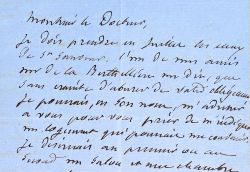 Monsieur le Docteur,
je dois prendre en Juillet les eaux
de St Sauveur. L'un de mes amis
Mr de la Berthellière me dit, que
sans crainte d'abuser de votre obligeance
je pourrais, en son nom, m'adresser
à vous pour vous prier de m'indiquer
un logement qui pourrait me convenir.
je désirerais au premier ou au
second un salon et une chambre